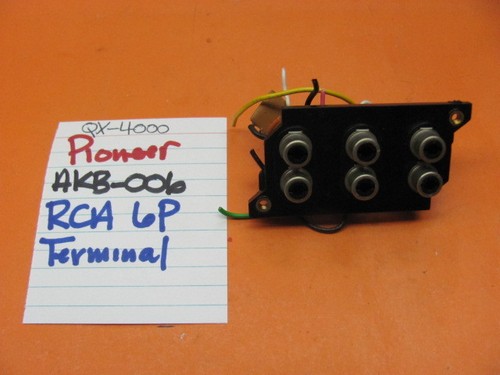 QX-4000
Pioneer
AKB-006
RCA 6P
Terminal